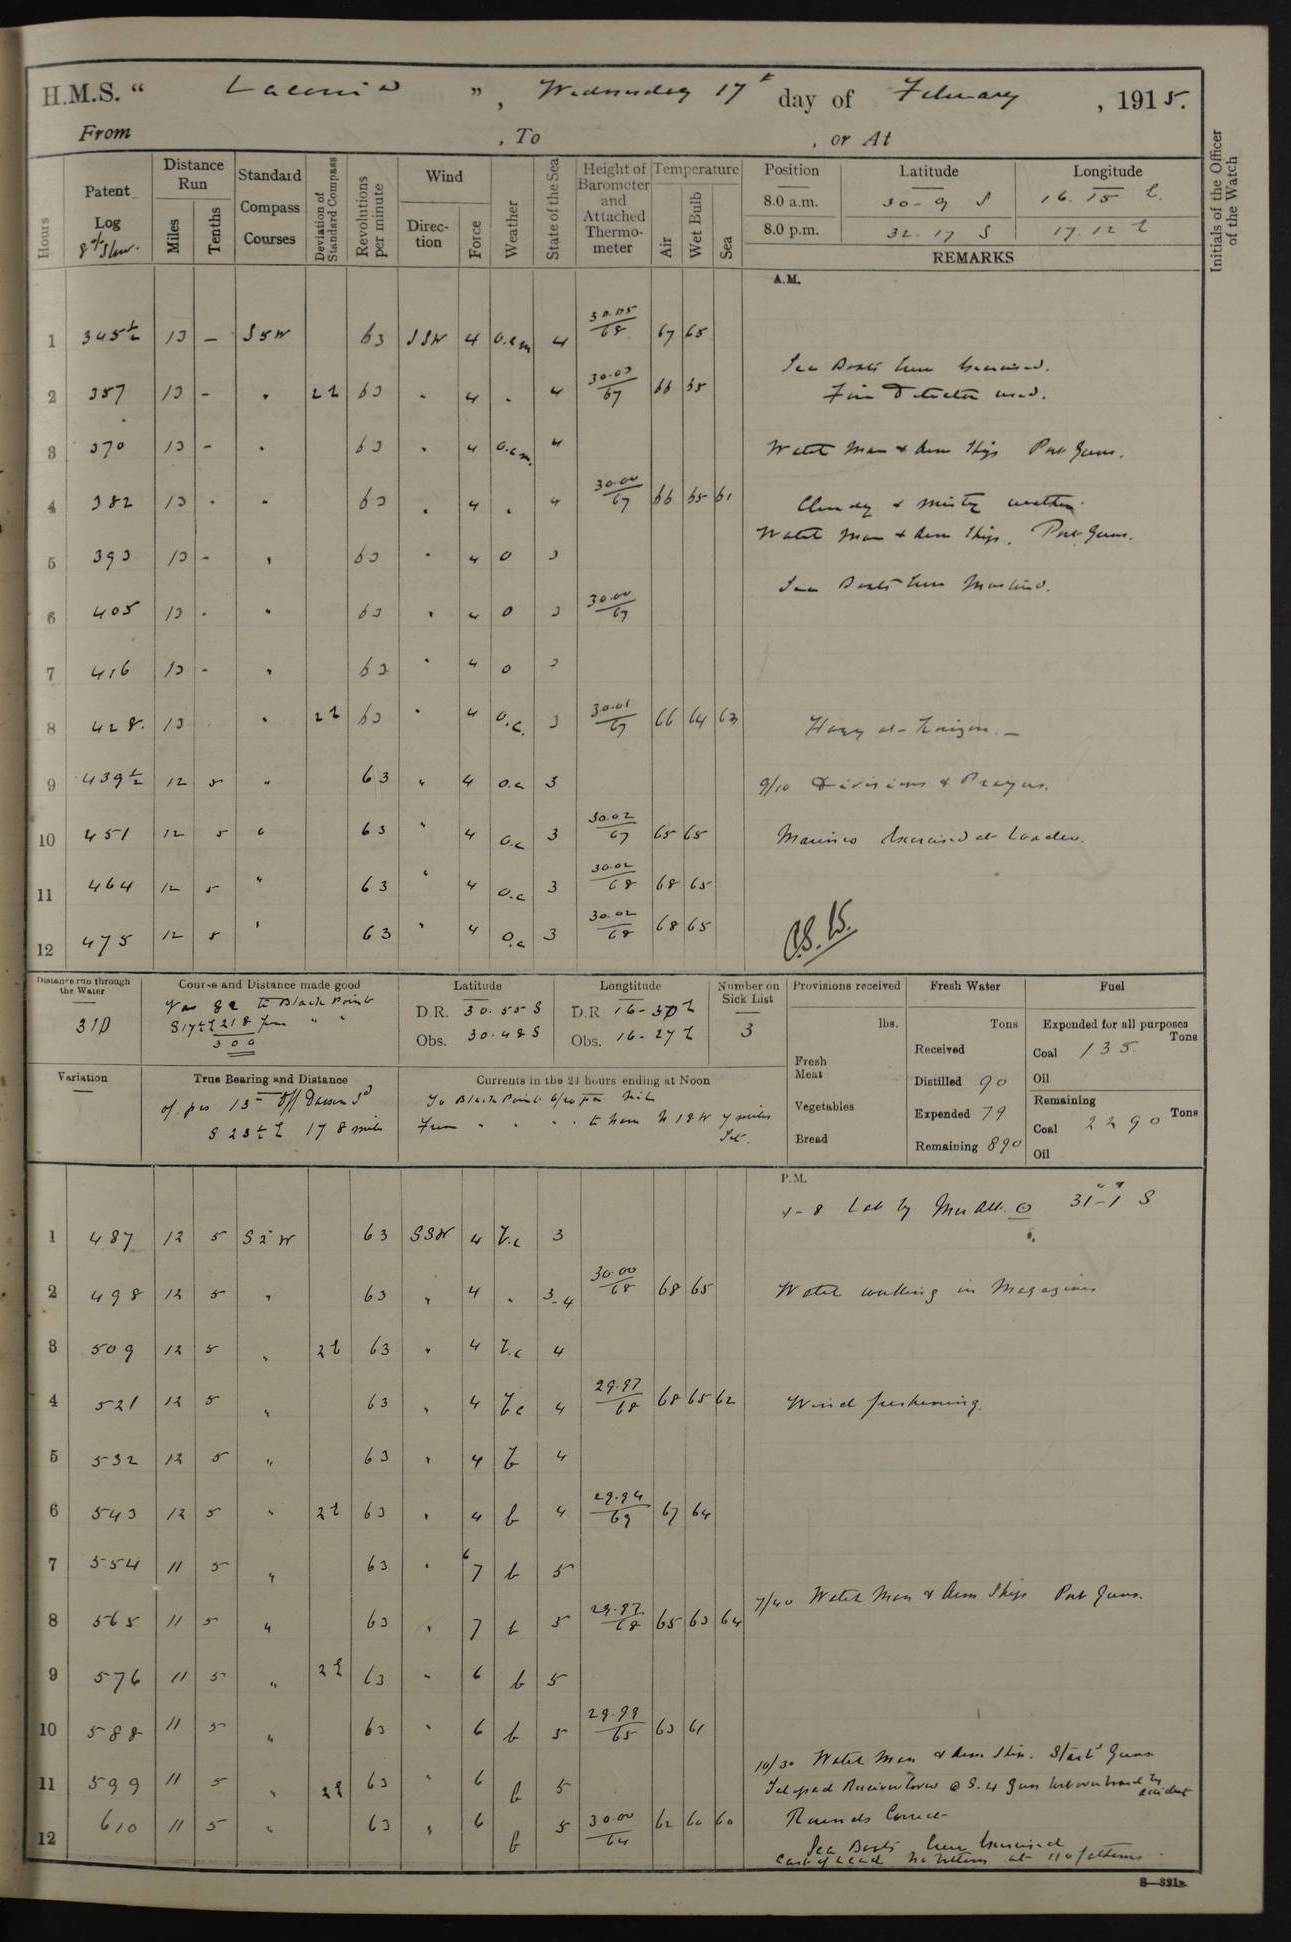 H.M.S. " Laconia ", Wednesday 17th day of February, 1915.
From , To , or At
Hours
Patent Log
Distance Run
Miles
Tenths
Standard Compass Courses
Deviation of Standard Compass
Revolutions per minute
Wind
Direction
Force
Weather
State of the Sea
Height of Barometer and Attached Thermometer
Temperature
Air
Wet Bulb
Sea
Position Latitude Longitude
8.0 a.m. 30-9 S 16.15 E.
8.0 p.m. 32.17 S 17.12 E
REMARKS
Initials of the Officer of the Watch
A.M.
1 345½ 13 – S5W 63 SSW 4 o.c.m 4 30.05/68 67 65
Sea Boats Crew Exercised.
2 357 13 - " 2E 63 " 4 " 4 30.03/67 66 65 Fire Detector used.
3 370 13 - " 63 " 4 o.c.m. 4 Watch Man & Arm Ships Port Guns.
4 382 13 - " 63 " 4 " 4 30.00/67 66 65 61 Cloudy & misty weather.
Watch Man & Arm Ships. Port Guns.
5 393 13 - " 63 " 4 o 3
Sea Boats Crew Mustered.
6 405 13 - " 63 " 4 o 3 30.00/67
7 416 13 - " 63 " 4 o 3
8 428 13 " 2E 63 " 4 o.c. 3 30.01/67 66 64 63 Hazy at Horizon. –
9 439½ 12 5 " 63 " 4 o.c 3 9/10 Divisions & Prayers.
10 451 12 5 " 63 " 4 o.c 3 30.02/67 65 65 Marines Exercised at Loader.
11 464 12 5 " 63 " 4 o.c 3 30.02/68 68 65
12 475 12 5 " 63 " 4 o.c 3 30.02/68 68 65
Distance run through the Water
310
Course and Distance made good
82 to Black Point
S17°E 218 from " "
300
Latitude
D.R. 30.55 S
Obs. 30.48 S
Longtitude
D.R 16-30 E
Obs. 16-27 E
Number on Sick List
3
Provisions received
lbs.
Fresh Meat
Vegetables
Bread
Fresh Water
Tons
Received
Distilled 90
Expended 79
Remaining 890
Fuel
Expended for all purposes
Tons
Coal 135
Oil
Remaining
Tons
Coal 2290
Oil
Variation
True Bearing and Distance
off Dassen Id
S 23° E 178 miles
Currents in the 24 hours ending at Noon
To Black Point 6/20 pm Nil
From " " " to Noon N 18 W 7 miles
Set.
P.M.
Lat by Mer Alt. 31-1 S
1 487 12 5 S2W 63 SSW 4 b.c 3
2 498 12 5 " 63 " 4 " 3-4 30.00/68 68 65 Watch walking in Magazines
3 509 12 5 " 2E 63 " 4 b.c 4
4 521 12 5 " 63 " 4 bc 4 29.97/68 68 65 62 Wind freshening.
5 532 12 5 " 63 " 4 b 4
6 543 12 5 " 2E 63 " 4 b 4 29.94/69 67 64
7 554 11 5 " 63 " 6 7 b 5
7/40 Watch Man & Arm Ships Port Guns.
8 565 11 5 " 63 " 7 b 5 29.97/68 65 63 64
9 576 11 5 " 2E 63 " 6 b 5
10 588 11 5 " 63 " 6 b 5 29.98/65 63 61
10/30 Watch Man & Arm Ship. Starb'd Guns
11 599 11 5 " 2E 63 " 6 b 5 @ S.4 Gun lost overboard by accident
12 610 11 5 " 63 " 6 b 5 30.00/64 62 60 60 Rounds Correct
Sea Boats Crew Exercised
Cast of Lead No bottom at 110 fathoms.
S—321B.